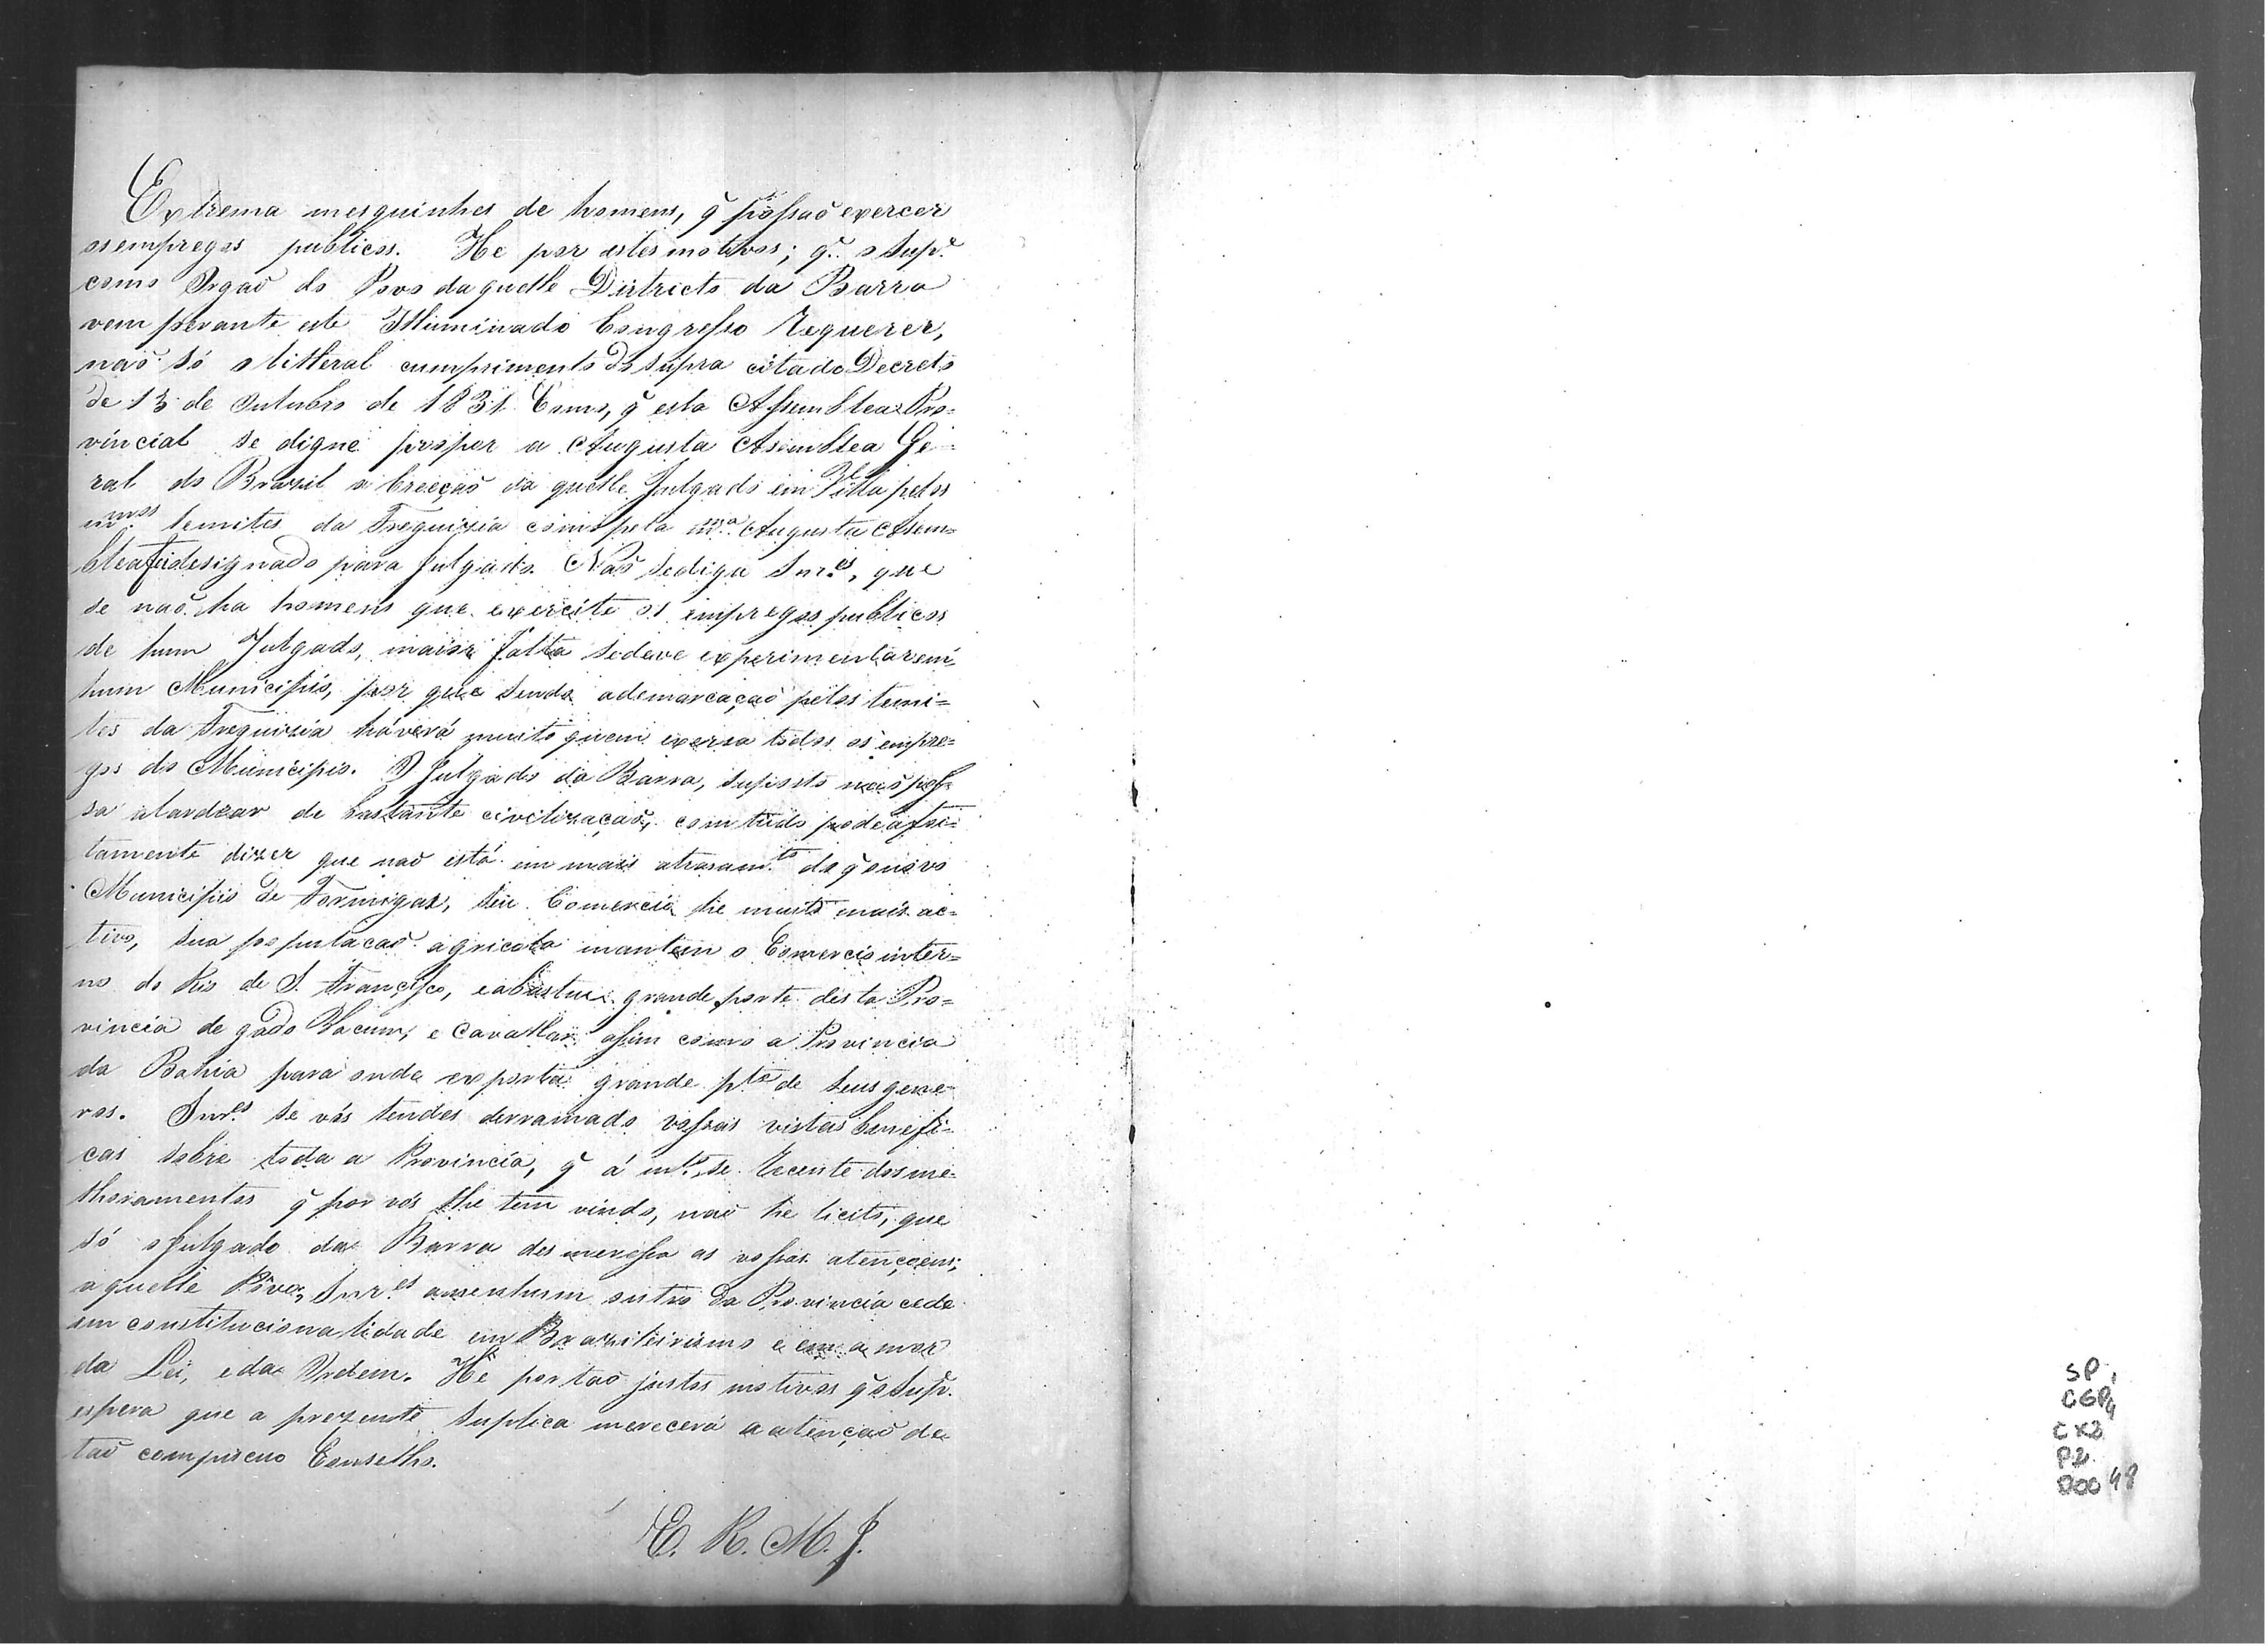 Extrema mesquinhes de homens, q̃ possaõ exercer
os empregos publicos. He por estes motivos; q̃ o Sup.e
como Orgaõ do Povo daquelle Districto da Barra
vem perante este Illuminado Congresso Requerer,
naõ só o litteral cumprimento do supra citado Decreto
de 13 de Outubro de 1831 Como, q̃ esta Assemblea Pro=
vincial se digne propor a Augusta Asemblea Ge=
ral do Brazil a Creeçaõ da quelle Julgado em Villa pelos
m.mos Lemites da Freguizia como pela m.ma Augusta Asem=
blea foi designado para Julgado. Naõ se diga Snr.es, que
se naõ ha homens que exercite os empregos publicos
de hum Julgado, maior falta se deve experimentar em
hum Municipio, por que sendo a demarcaçaõ pelos Lemi=
tes da Freguizia háverá muito quem exersa todos os empre=
gos do Municipio. O Julgado da Barra, suposto naõ pos=
sa alardear de bastante civilizaçaõ, com tudo pode afoi=
tamente dizer que naõ está em mais atrasam.to do q̃ o novo
Municipio de Formigas, seu Comercio he muito mais ac=
tivo, sua populacaõ agricola mantem o Comercio inter=
no do Rio de S. Francisco, e abastece grande parte desta Pro=
vincia de gado Vacum, e Cavallar asim como a Provincia
da Bahia para onde exporta grande p.te de seus gene=
ros. Snr.es se vós tendes derramado vossas vistas benefi=
cas sobre toda a Provincia, q̃ á m.to se Recente dos me=
lhoramentos q̃ por vós lhe tem vindo, naõ he licito, que
só o Julgado da Barra desmeressa as vossas atençoens;
aquelle Povo, Snr.es a nenhum outro da Provincia cede
em constitucionalidade em Brazileirismo e em amor
da Lei, e da Ordem. He por taõ justos motivos q̃ o Sup.
espera que a prezente suplica merecerá a atençaõ de
taõ compircuo Conselho.
E. R. M. J.
SP 1
CGP4
CX2
P2
DOC 48